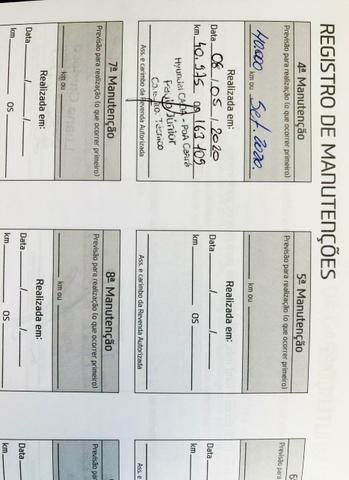 REGISTRO DE MANUTENÇÕES
4ª Manutenção
Previsão para realização (o que ocorrer primeiro)
40.000 km ou Set. 2020
Realizada em:
Data 08 / 05 / 2020
km 40.975 OS 163109
Hyundai CAOA - POA
Júnior
Técnico
Ass. e carimbo da Revenda Autorizada
5ª Manutenção
Previsão para realização (o que ocorrer primeiro)
km ou
Realizada em:
Data / /
km OS
Ass. e carimbo da Revenda Autorizada
6
Previsão para
Data
km
Ass. e
7ª Manutenção
Previsão para realização (o que ocorrer primeiro)
km ou
Realizada em:
Data / /
km OS
8ª Manutenção
Previsão para realização (o que ocorrer primeiro)
km ou
Realizada em:
Data / /
km OS
Previsão para
Data
km